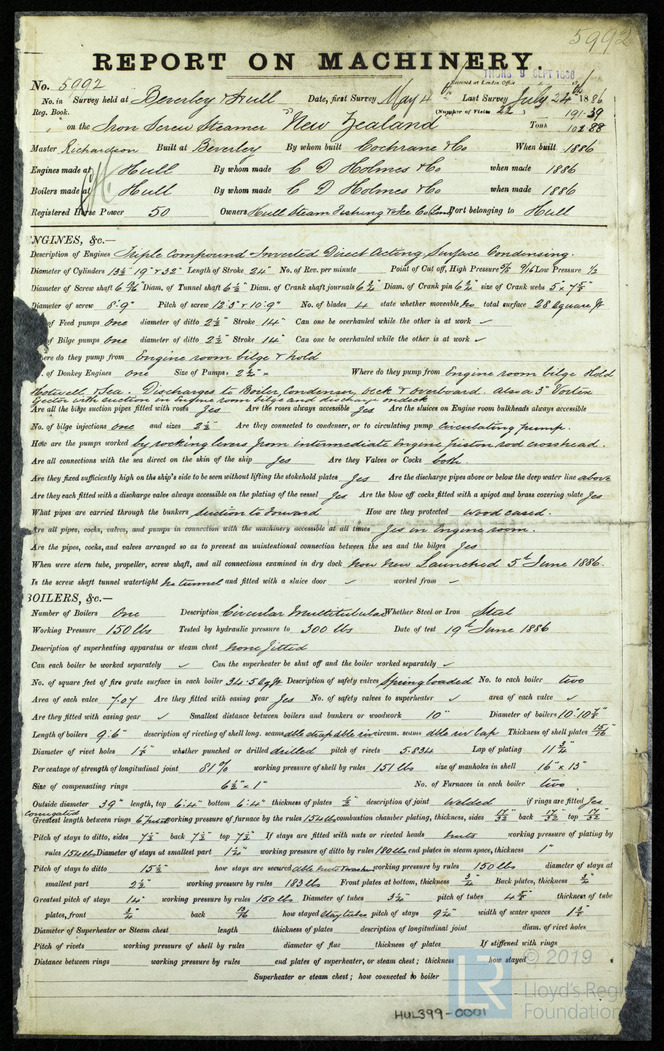 5992
REPORT ON MACHINERY.
THURS 9 SEPT 1886
No. 5992
No. in Survey held at Beverley & Hull Date, first Survey May 4th Last Survey July 24th 1886
Reg. Book. (Number of Visits 22)
on the Iron Screw Steamer "New Zealand" Tons 191.29
Master Richardson Built at Beverley By whom built Cochrane & Co When built 1886
Engines made at Hull By whom made C D Holmes & Co when made 1886
Boilers made at Hull By whom made C D Holmes & Co when made 1886
Registered Horse Power 50 Owners Hull Steam Fishing & Ice Co Port belonging to Hull
ENGINES, &c.—
Description of Engines Triple Compound Inverted Direct Acting Surface Condensing.
Diameter of Cylinders 13½" 19" & 32" Length of Stroke 24" No. of Rev. per minute Point of Cut off, High Pressure Low Pressure ½
Diameter of Screw shaft Diam. of Tunnel shaft Diam. of Crank shaft journals Diam. of Crank pin size of Crank webs
Diameter of screw 8'.9" Pitch of screw 12'.3" & 10'.9" No. of blades 4 state whether moveable No total surface 28 square ft
of Feed pumps One diameter of ditto 2½" Stroke 14" Can one be overhauled while the other is at work ✓
of Bilge pumps One diameter of ditto 2½" Stroke 14" Can one be overhauled while the other is at work ✓
Where do they pump from Engine room bilge & hold
of Donkey Engines One Size of Pumps Where do they pump from Engine room bilge Hold
Hotwell & Sea. Discharges to Boiler, Condenser, deck & overboard. Also a 3"
with suction in Engine room bilge and discharge on deck
Are all the bilge suction pipes fitted with roses Yes Are the roses always accessible Yes Are the sluices on Engine room bulkheads always accessible
No. of bilge injections One and sizes 2½" Are they connected to condenser, or to circulating pump Circulating pump.
How are the pumps worked by rocking levers from intermediate Engine piston rod crosshead.
Are all connections with the sea direct on the skin of the ship Yes Are they Valves or Cocks both.
Are they fixed sufficiently high on the ship's side to be seen without lifting the stokehold plates Yes Are the discharge pipes above or below the deep water line above
Are they each fitted with a discharge valve always accessible on the plating of the vessel Yes Are the blow off cocks fitted with a spigot and brass covering plate Yes
What pipes are carried through the bunkers Suction to forward How are they protected Wood cased.
Are all pipes, cocks, valves, and pumps in connection with the machinery accessible at all times Yes in Engine room.
Are the pipes, cocks, and valves arranged so as to prevent an unintentional connection between the sea and the bilges Yes
When were stern tube, propeller, screw shaft, and all connections examined in dry dock Now new Launched 5th June 1886.
Is the screw shaft tunnel watertight No tunnel and fitted with a sluice door ✓ worked from ✓
BOILERS, &c.—
Number of Boilers One Description Circular Multitubular Whether Steel or Iron Steel
Working Pressure 150 lbs Tested by hydraulic pressure to 300 lbs Date of test 19th June 1886
Description of superheating apparatus or steam chest None fitted
Can each boiler be worked separately ✓ Can the superheater be shut off and the boiler worked separately ✓
No. of square feet of fire grate surface in each boiler 34.5 Sq ft Description of safety valves Spring loaded No. to each boiler two
Area of each valve 7.07 Are they fitted with easing gear Yes No. of safety valves to superheater ✓ area of each valve ✓
Are they fitted with easing gear ✓ Smallest distance between boilers and bunkers or woodwork 10" Diameter of boilers
Length of boilers 9'.6" description of riveting of shell long. seams dble strap dble riv circum. seams dble riv lap Thickness of shell plates
Diameter of rivet holes whether punched or drilled drilled pitch of rivets 5.834 Lap of plating
Percentage of strength of longitudinal joint 81% working pressure of shell by rules 151 lbs size of manholes in shell 16" x 13"
Size of compensating rings 6½" x 1" No. of Furnaces in each boiler two
Outside diameter 39" length, top 6'.4" bottom 6'.4" thickness of plates ½" description of joint Welded if rings are fitted Yes
corrugated
Greatest length between rings working pressure of furnace by the rules 154 lbs combustion chamber plating, thickness, sides back top
Pitch of stays to ditto, sides 7½" back 7½" top 7½" If stays are fitted with nuts or riveted heads nuts working pressure of plating by
rules 154 lbs Diameter of stays at smallest part working pressure of ditto by rules 180 lbs end plates in steam space, thickness 1"
Pitch of stays to ditto 15½" how stays are secured dble nuts & washers working pressure by rules 150 lbs diameter of stays at
smallest part working pressure by rules 183 lbs Front plates at bottom, thickness ¾" Back plates, thickness ¾"
Greatest pitch of stays 14" working pressure by rules 150 lbs Diameter of tubes pitch of tubes thickness of tube
plates, front back how stayed stay tubes pitch of stays width of water spaces
Diameter of Superheater or Steam chest length thickness of plates description of longitudinal joint diam. of rivet holes
Pitch of rivets working pressure of shell by rules diameter of flue thickness of plates If stiffened with rings
Distance between rings working pressure by rules end plates of superheater, or steam chest; thickness how stayed
Superheater or steam chest; how connected to boiler
© 2019
LR Lloyd's Register
Foundation
HUL399-0001